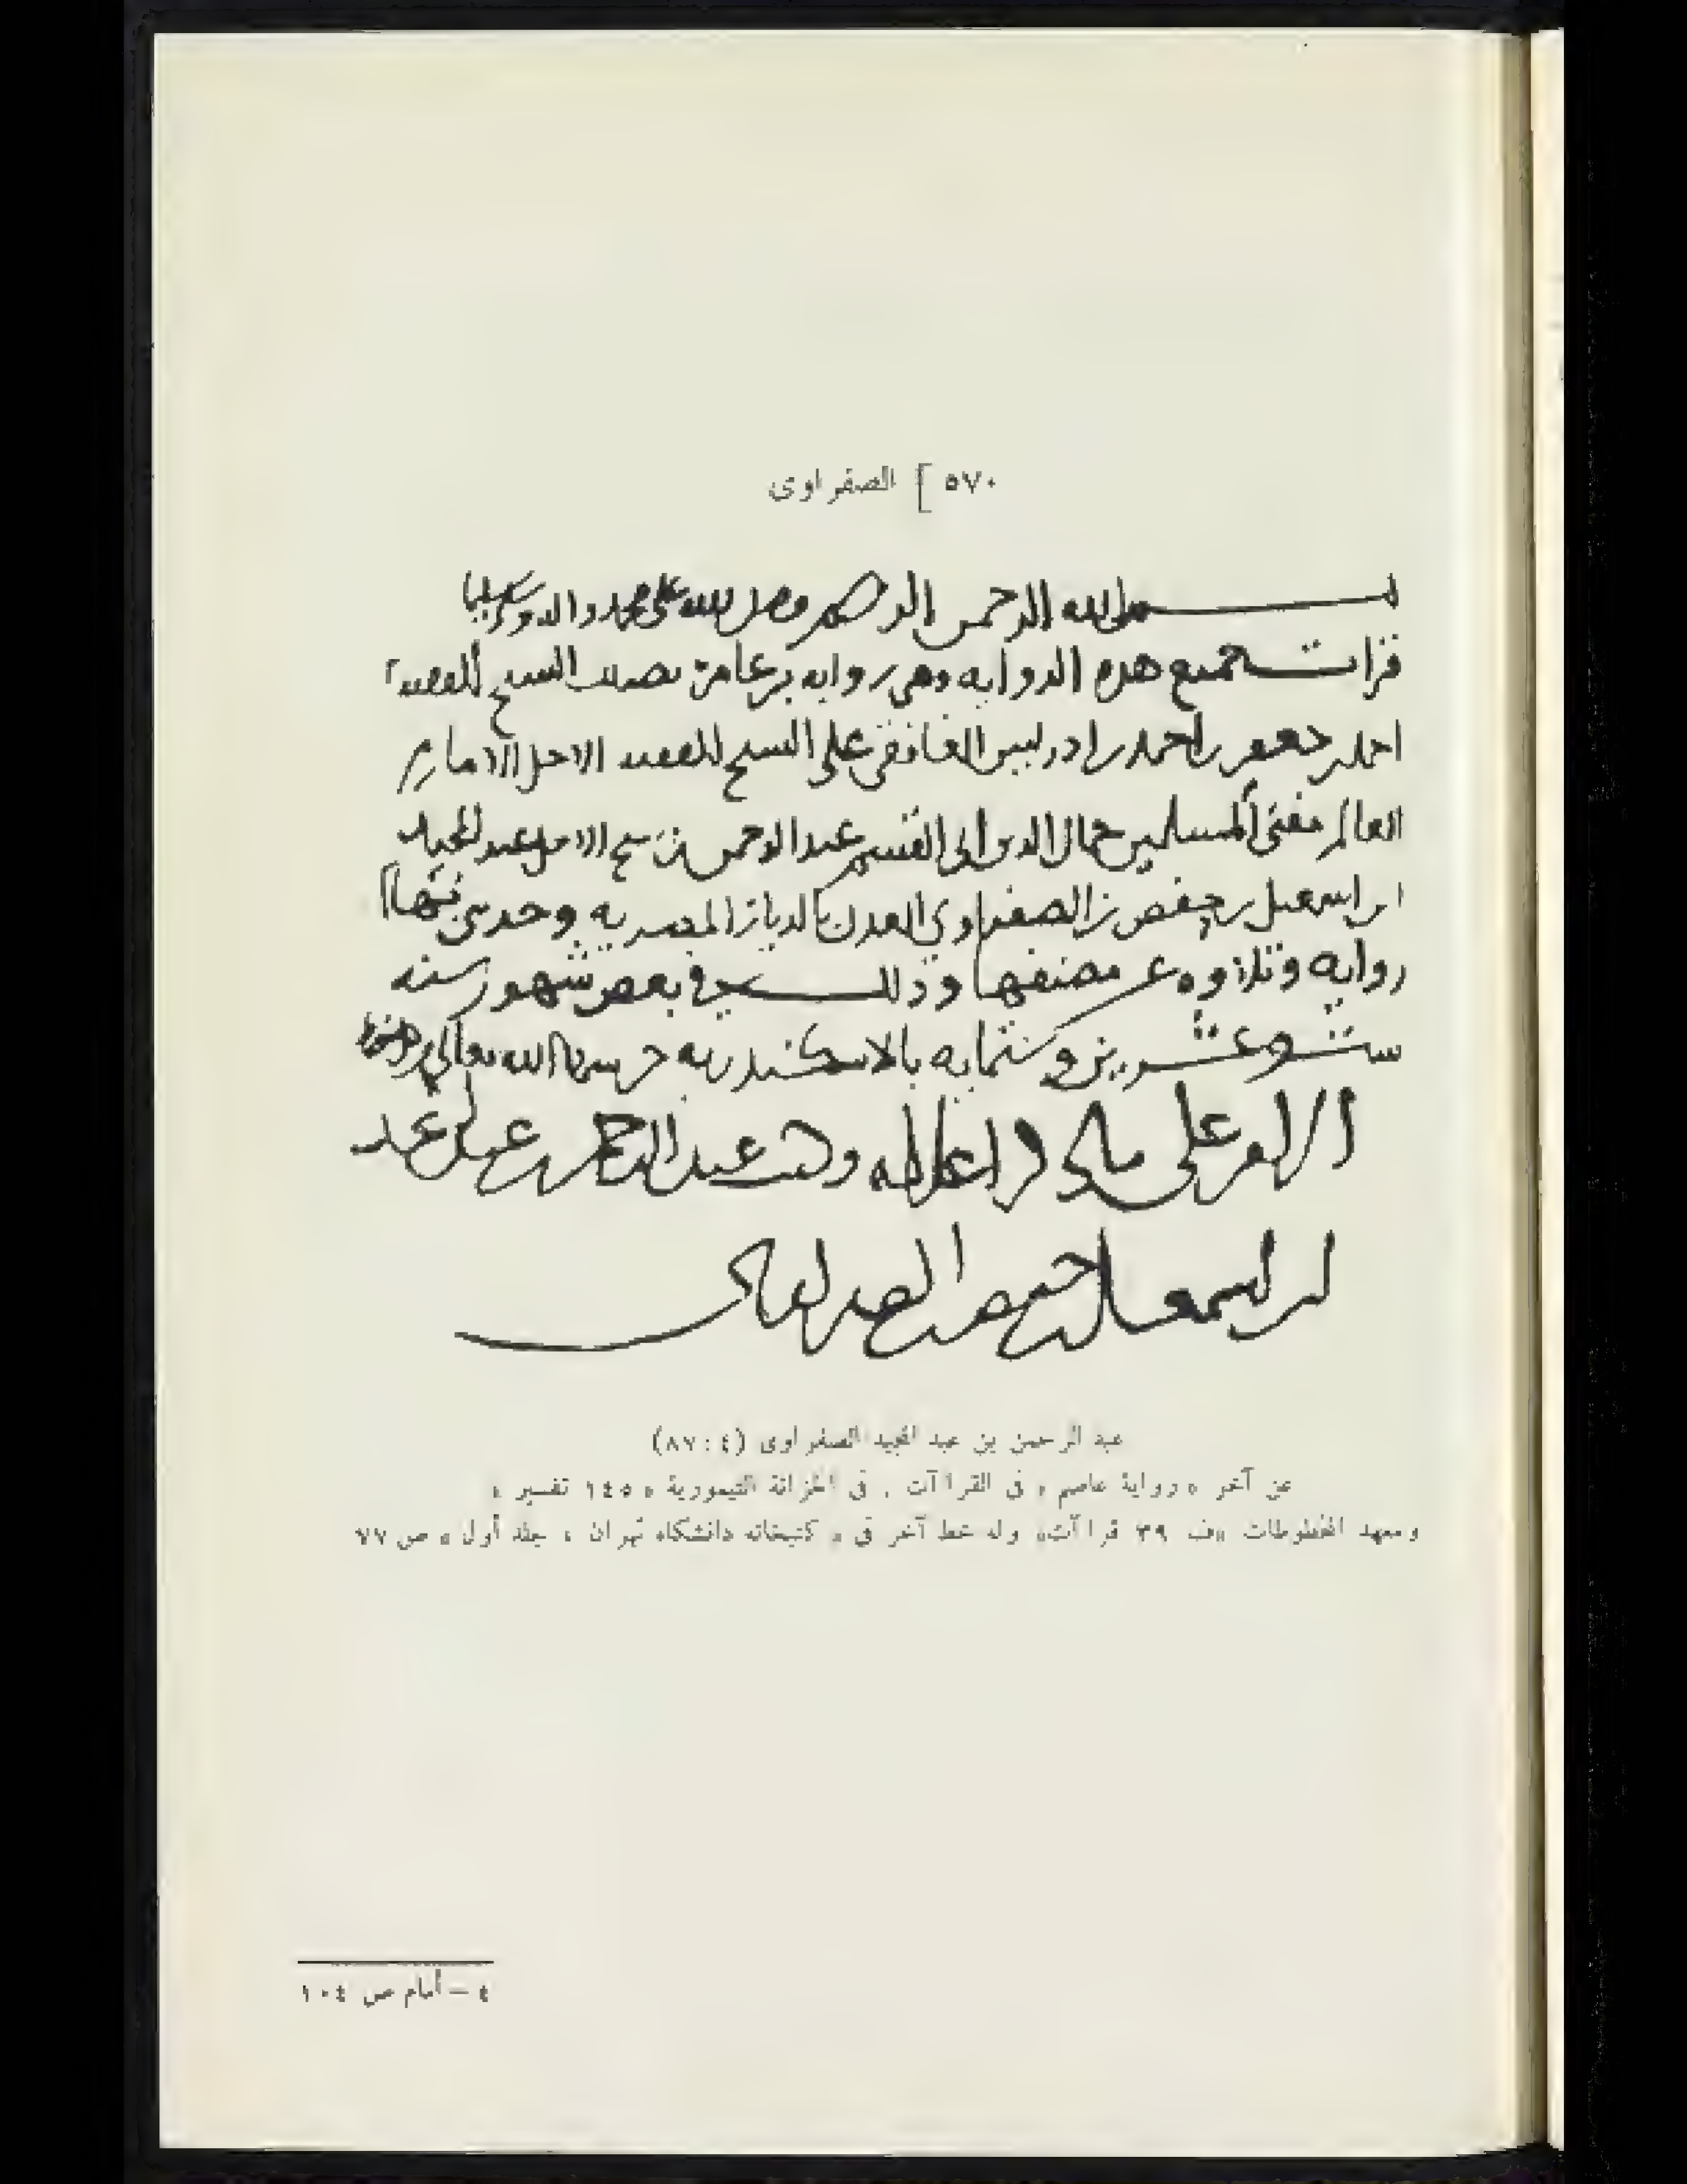 ٥٧٠ ] الصفراوى
بسم الله الرحمن الرحيم وصلى الله على محمد واله وسلم تسليما
قرات جميع هذه الروايه وهي روايه عاصم السيخ الفقيه
احمد بن جعفر بن احمد بن ادريس الغافقي على الشيخ الفقيه الاجل الامام
العالم مفتي المسلمين جمال الدين ابي القسم عبد الرحمن بن الشيخ الاجل عبد المجيد
ابن اسمعيل بن حفص الصفراوي بالديار المصريه وحدثني بها
روايه وتلاوه عن مصنفها وذلك في بعض شهور سنه
ست وعشرين وستمايه بالاسكندريه حرسها الله تعالى
الامر على ما ذكر اعلاه وكتب عبد الرحمن بن عبد المجيد
بن اسمعيل بن حفص الصفراوي
عبد الرحمن بن عبد المجيد الصفراوى (٤ : ٨٧)
عن آخر « رواية عاصم » فى القراآت ، فى الخزانة التيمورية « ١٤٥ تفسير »
ومعهد المخطوطات «ف ٣٩ قراآت» وله خط آخر فى « كتبخانه دانشگاه تهران ، جلد أول » ص ٧٧
٤ – أمام ص ١٠٤